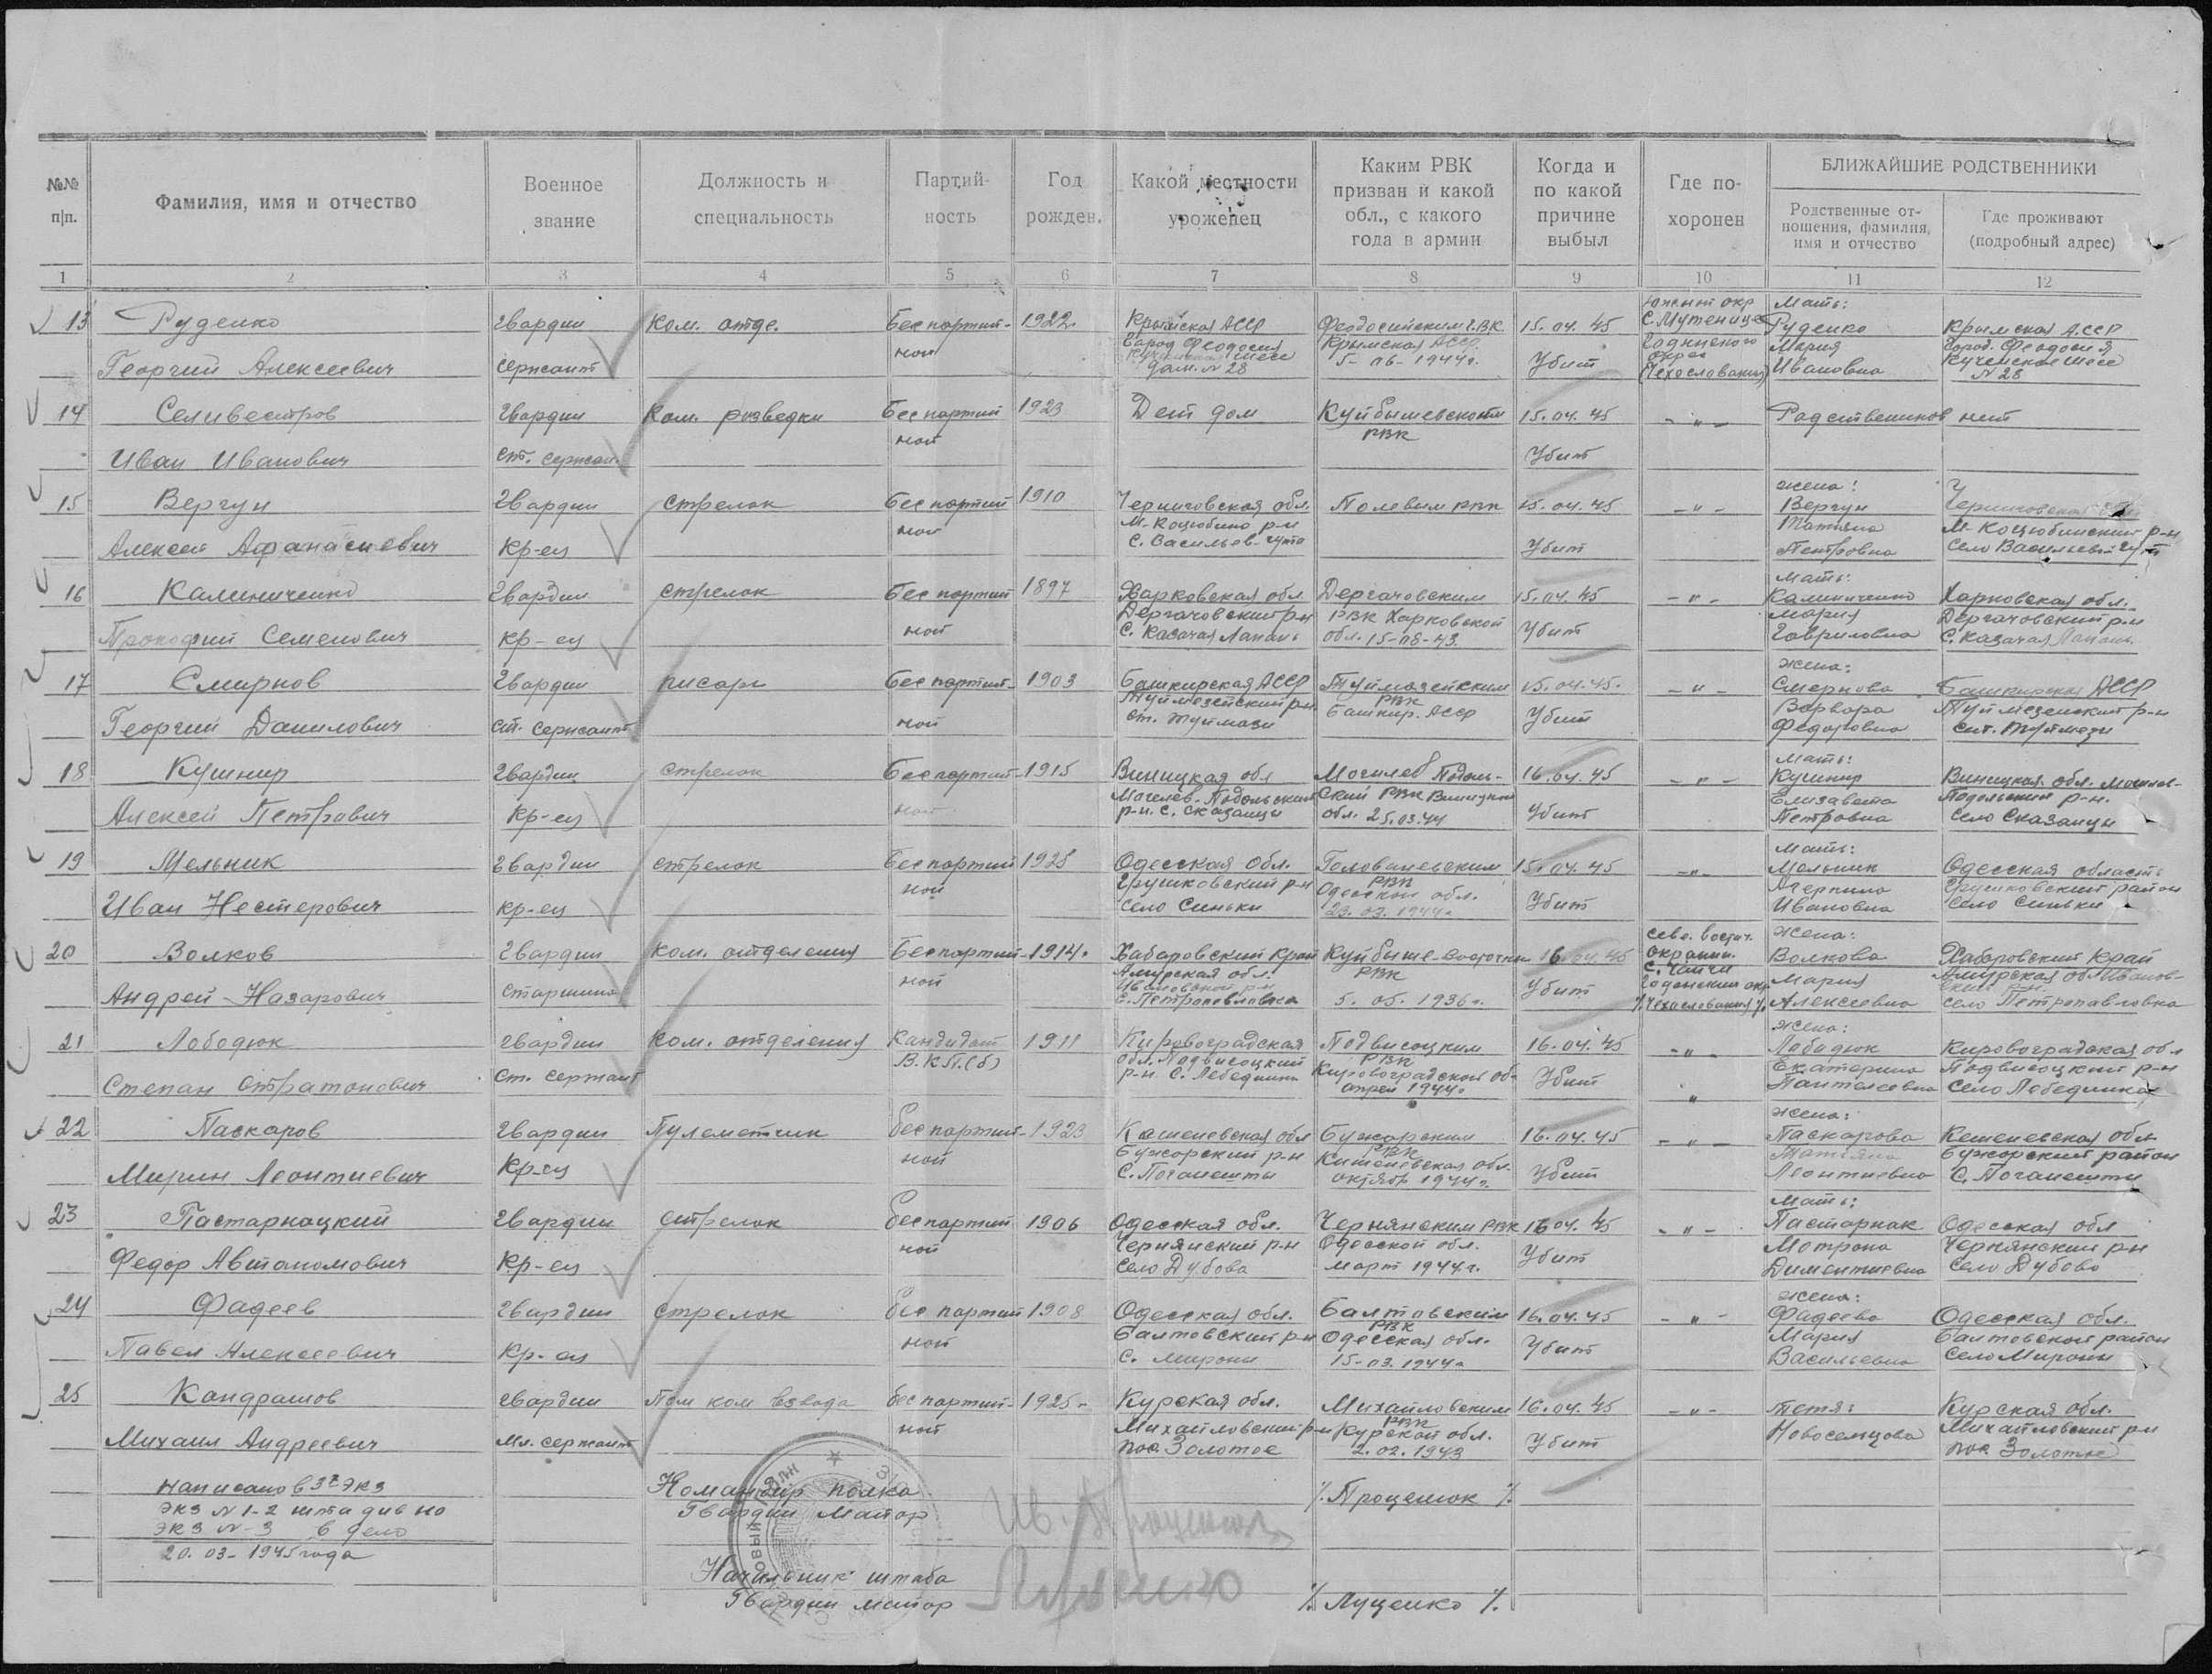 №№ п|п.
Фамилия, имя и отчество
Военное звание
Должность и специальность
Партий- ность
Год рожден.
Какой местности уроженец
Каким РВК призван и какой обл., с какого года в армии
Когда и по какой причине выбыл
Где по- хоронен
БЛИЖАЙШИЕ РОДСТВЕННИКИ
Родственные от- ношения, фамилия, имя и отчество
Где проживают (подробный адрес)
1 2 3 4 5 6 7 8 9 10 11 12
13 Руденко Гвардии Ком. отде. Беспартий- 1922 Крымская АССР Феодосийским ГВК 15.04.45 С. Мутенице Мать: Руденко Крымская АССР
Георгий Алексеевич сержант ной город Феодосия шоссе дом. N 28 Крымская АССР 5-06-1944г. Убит Годинского округ (Чехословакия) Мария Ивановна город. Феодосия шоссе N 28
14 Селивестров Гвардии Ком. розведки Беспартий 1923 Дет дом Куйбышевским РВК 15.04.45 -"- Родствеников нет
Иван Иванович ст. сержан. ной Убит
15 Вергун Гвардии стрелок Беспартий 1910 Черниговская обл. Полевым РПП 15.04.45 -"- жена: Вергун Черниговская
Алексей Афанасиевич кр-ец ной М. Коцюбино р-н С. Васильев-гута Убит Татьяна Петровна М. Коцюбинский р-н село Васильев
16 Калиниченко Гвардии стрелок Беспартий 1897 Харковская обл Дергачовским 15.04.45 -"- мать: Калиниченко Харковская обл.
Прокофий Семенович кр-ец ной Дергачовский р-н С. Казачая Лапань РВК Харковской обл. 15-08-43. Убит Мария Гавриловна Дергачовский р-н С. Казачая Лапань
17 Смирнов Гвардии писарь Беспартий- 1903 Башкирская АССР Туймазейским 15.04.45. -"- жена: Смернова Башкирская АССР
Георгий Данилович ст. сержант ной Туймезейский р-н ст. Туймази РВК Башкир. АССР Убит Варвара Федоровна Туймезейский р-н ст. Туймези
18 Кушнир Гвардии стрелок Беспартий- 1915 Виницкая обл Могилев Подоль- 16.04.45 -"- мать: Кушнир Виницкая обл. Могилев-
Алексей Петрович кр-ец ной Могелев-Подольский р-н. С. Сказанцы ский РВК Виницкой обл. 25.03.44 Убит Елизавета Петровна Подольский р-н. село Сказанцы
19 Мельник гвардии стрелок Беспартий 1925 Одесская обл. Голованевским 15.04.45 -"- мать: Мельник Одесская область
Иван Нестерович кр-ец ной Грушковский р-н село Синьки РВК Одесской обл. 23.03.1944г Убит Ивановна Грушковский район село Синьки
20 Волков Гвардии ком. отделения Беспартий- 1914. Хабаровский край 16.04.45 окраин. жена: Волкова Хабаровский край
Андрей Назарович старшина ной Амурская обл. Ивановский р-н С. Петропавловка РВК 5.05.1936г. Убит Годонский окр. /Чехословакия/. Мария Алексеевна Амурская обл. Иванов- ский р-н. село Петропавловка
21 Лободюк гвардии ком. отделения Кандидат 1911 Кировоградская Подвисоцким 16.04.45 -"- жена: Лободюк Кировоградская обл
Степан ст. сержант В.К.П.(б) обл. Подвисоцкий р-н С. Лебединка РВК Кировоградской об. апрел 1944г. Убит " Екатерина Пантелеевна Подвисоцкий р-н село Лебединка
22 Паскаров Гвардии Пулеметчик беспартий- 1923 Кешеневская обл Бужорским 16.04.45 -"- жена: Паскарова Кешеневская обл
Мирин Леонтиевич кр-ец ной Бужорский р-н С. Поганешты РВК Кишеневская обл. октябрь 1944г. Убит Татьяна Леонтиевна Бужорский район С. Поганешти
23 Пастарнацкий Гвардии стрелок беспартий 1906 Одесская обл. Чернянским РВК 16.04.45 -"- мать: Пастарнак Одесская обл
Федор Автономович кр-ец ной Чернянский р-н село Дубова Одесской обл. март 1944г. Убит Мотрона Диментиевна Чернянский р-н село Дубово
24 Фадеев Гвардии стрелок беспартий 1908 Одесская обл. Балтовским 16.04.45 -"- жена: Фадеева Одесская обл.
Павел Алексеевич кр-ец ной Балтовский р-н С. Мирони РВК Одесская обл. 15-03.1944г Убит Мария Васильевна Балтовской район село Мироны
25 Кандрашов гвардии Пом ком взвода беспартий- 1925 Курская обл. Михайловским 16.04.45 -"- тетя: Курская обл.
Михаил Андреевич мл. сержант ной Михайловский р-н пос. Золотое РВК Курской обл. 2.02.1943 Убит Новосельцова Михайловский р-н пос. Золотое
Написано в 3х экз
экз N 1-2 штадив но
экз N-3 в дело
20.03-1945 года
Командир полка
Гвардии Майор /.Проценюк/.
Начильник штаба
Гвардии майор /.Луценко/.